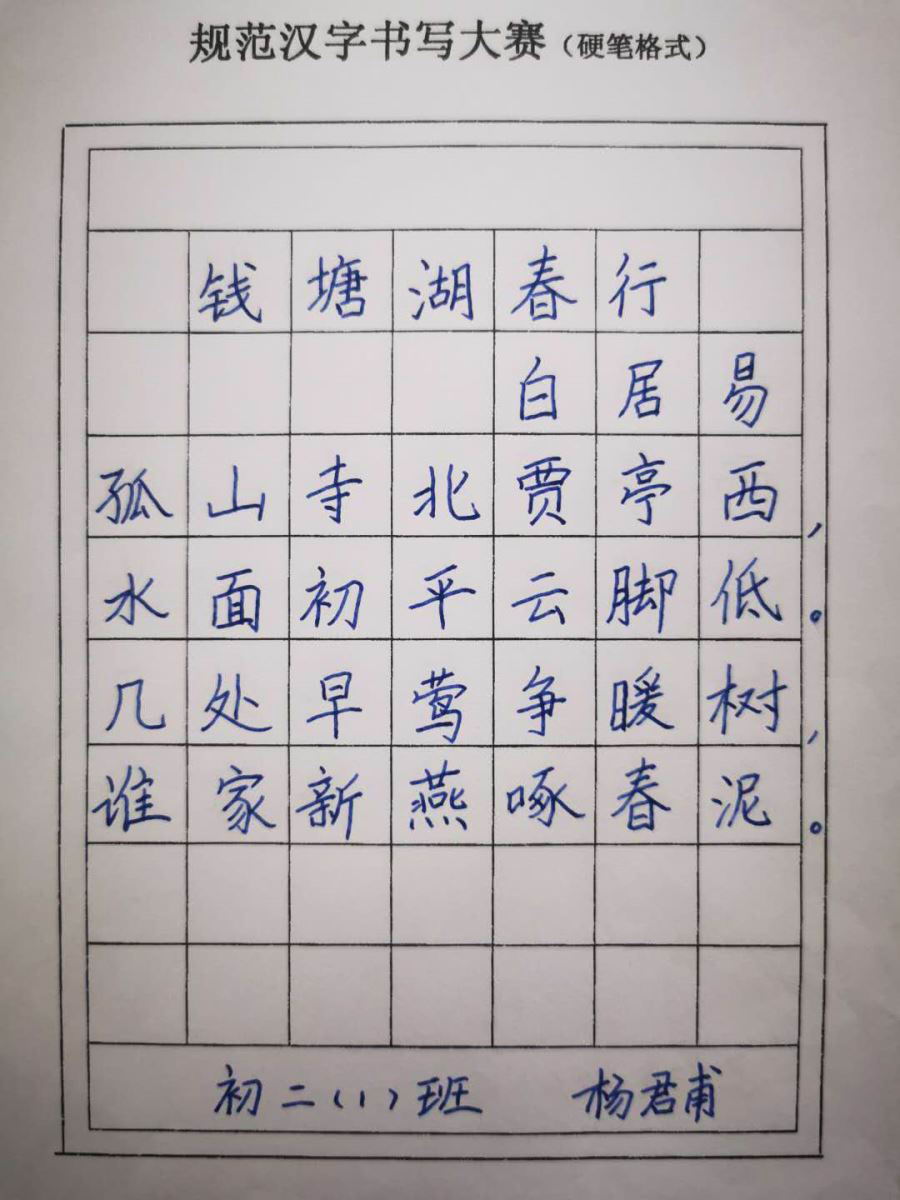 规范汉字书写大赛（硬笔格式）
钱塘湖春行
白居易
孤山寺北贾亭西，
水面初平云脚低。
几处早莺争暖树，
谁家新燕啄春泥。
初二（1）班 杨君甫